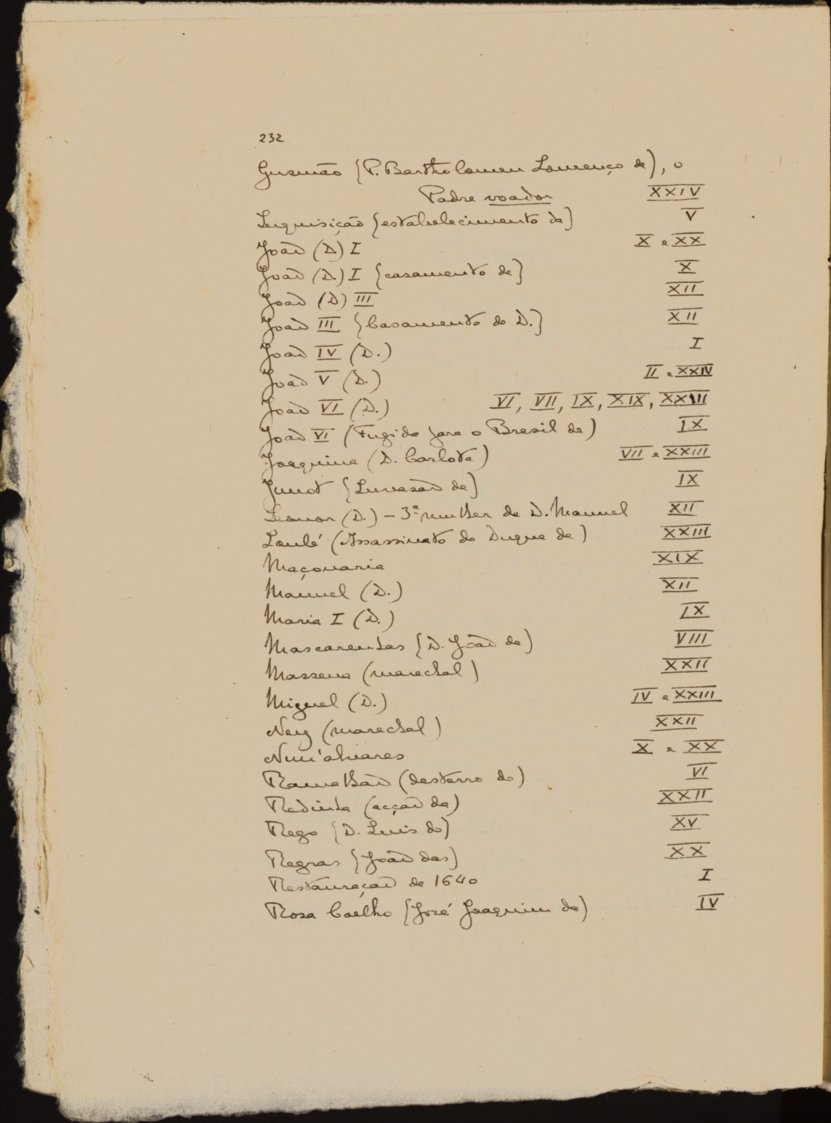 232
Gusmão (P. Bartholomeu Lourenço de), o
Padre voador XXIV
Inquisição (estabelecimento da) V
João (D.) I X e XX
João (D.) I (casamento de) X
João (D.) III XII
João III (Casamento de D.) XII
João IV (D.) I
João V (D.) II e XXIV
João VI (D.) VI, VII, IX, XIX, XXIII
João VI (Fugida para o Brasil de) IX
Joaquina (D. Carlota) VII e XXIII
Junot (Invasão de) IX
Leonor (D.) – 3ª mulher de D. Manuel XII
Loulé (Assassinato do Duque de) XXIII
Maçonaria XIX
Manuel (D.) XII
Maria I (D.) IX
Mascarenhas (D. João de) VIII
Massena (marechal) XXII
Miguel (D.) IV e XXIII
Ney (marechal) XXII
Nun'alvares X e XX
Ramalhão (desterro do) VI
Redinha (acção da) XXII
Rego (D. Luis do) XV
Regras (João das) XX
Restauração de 1640 I
Rosa Coêlho (José Joaquim da) IV